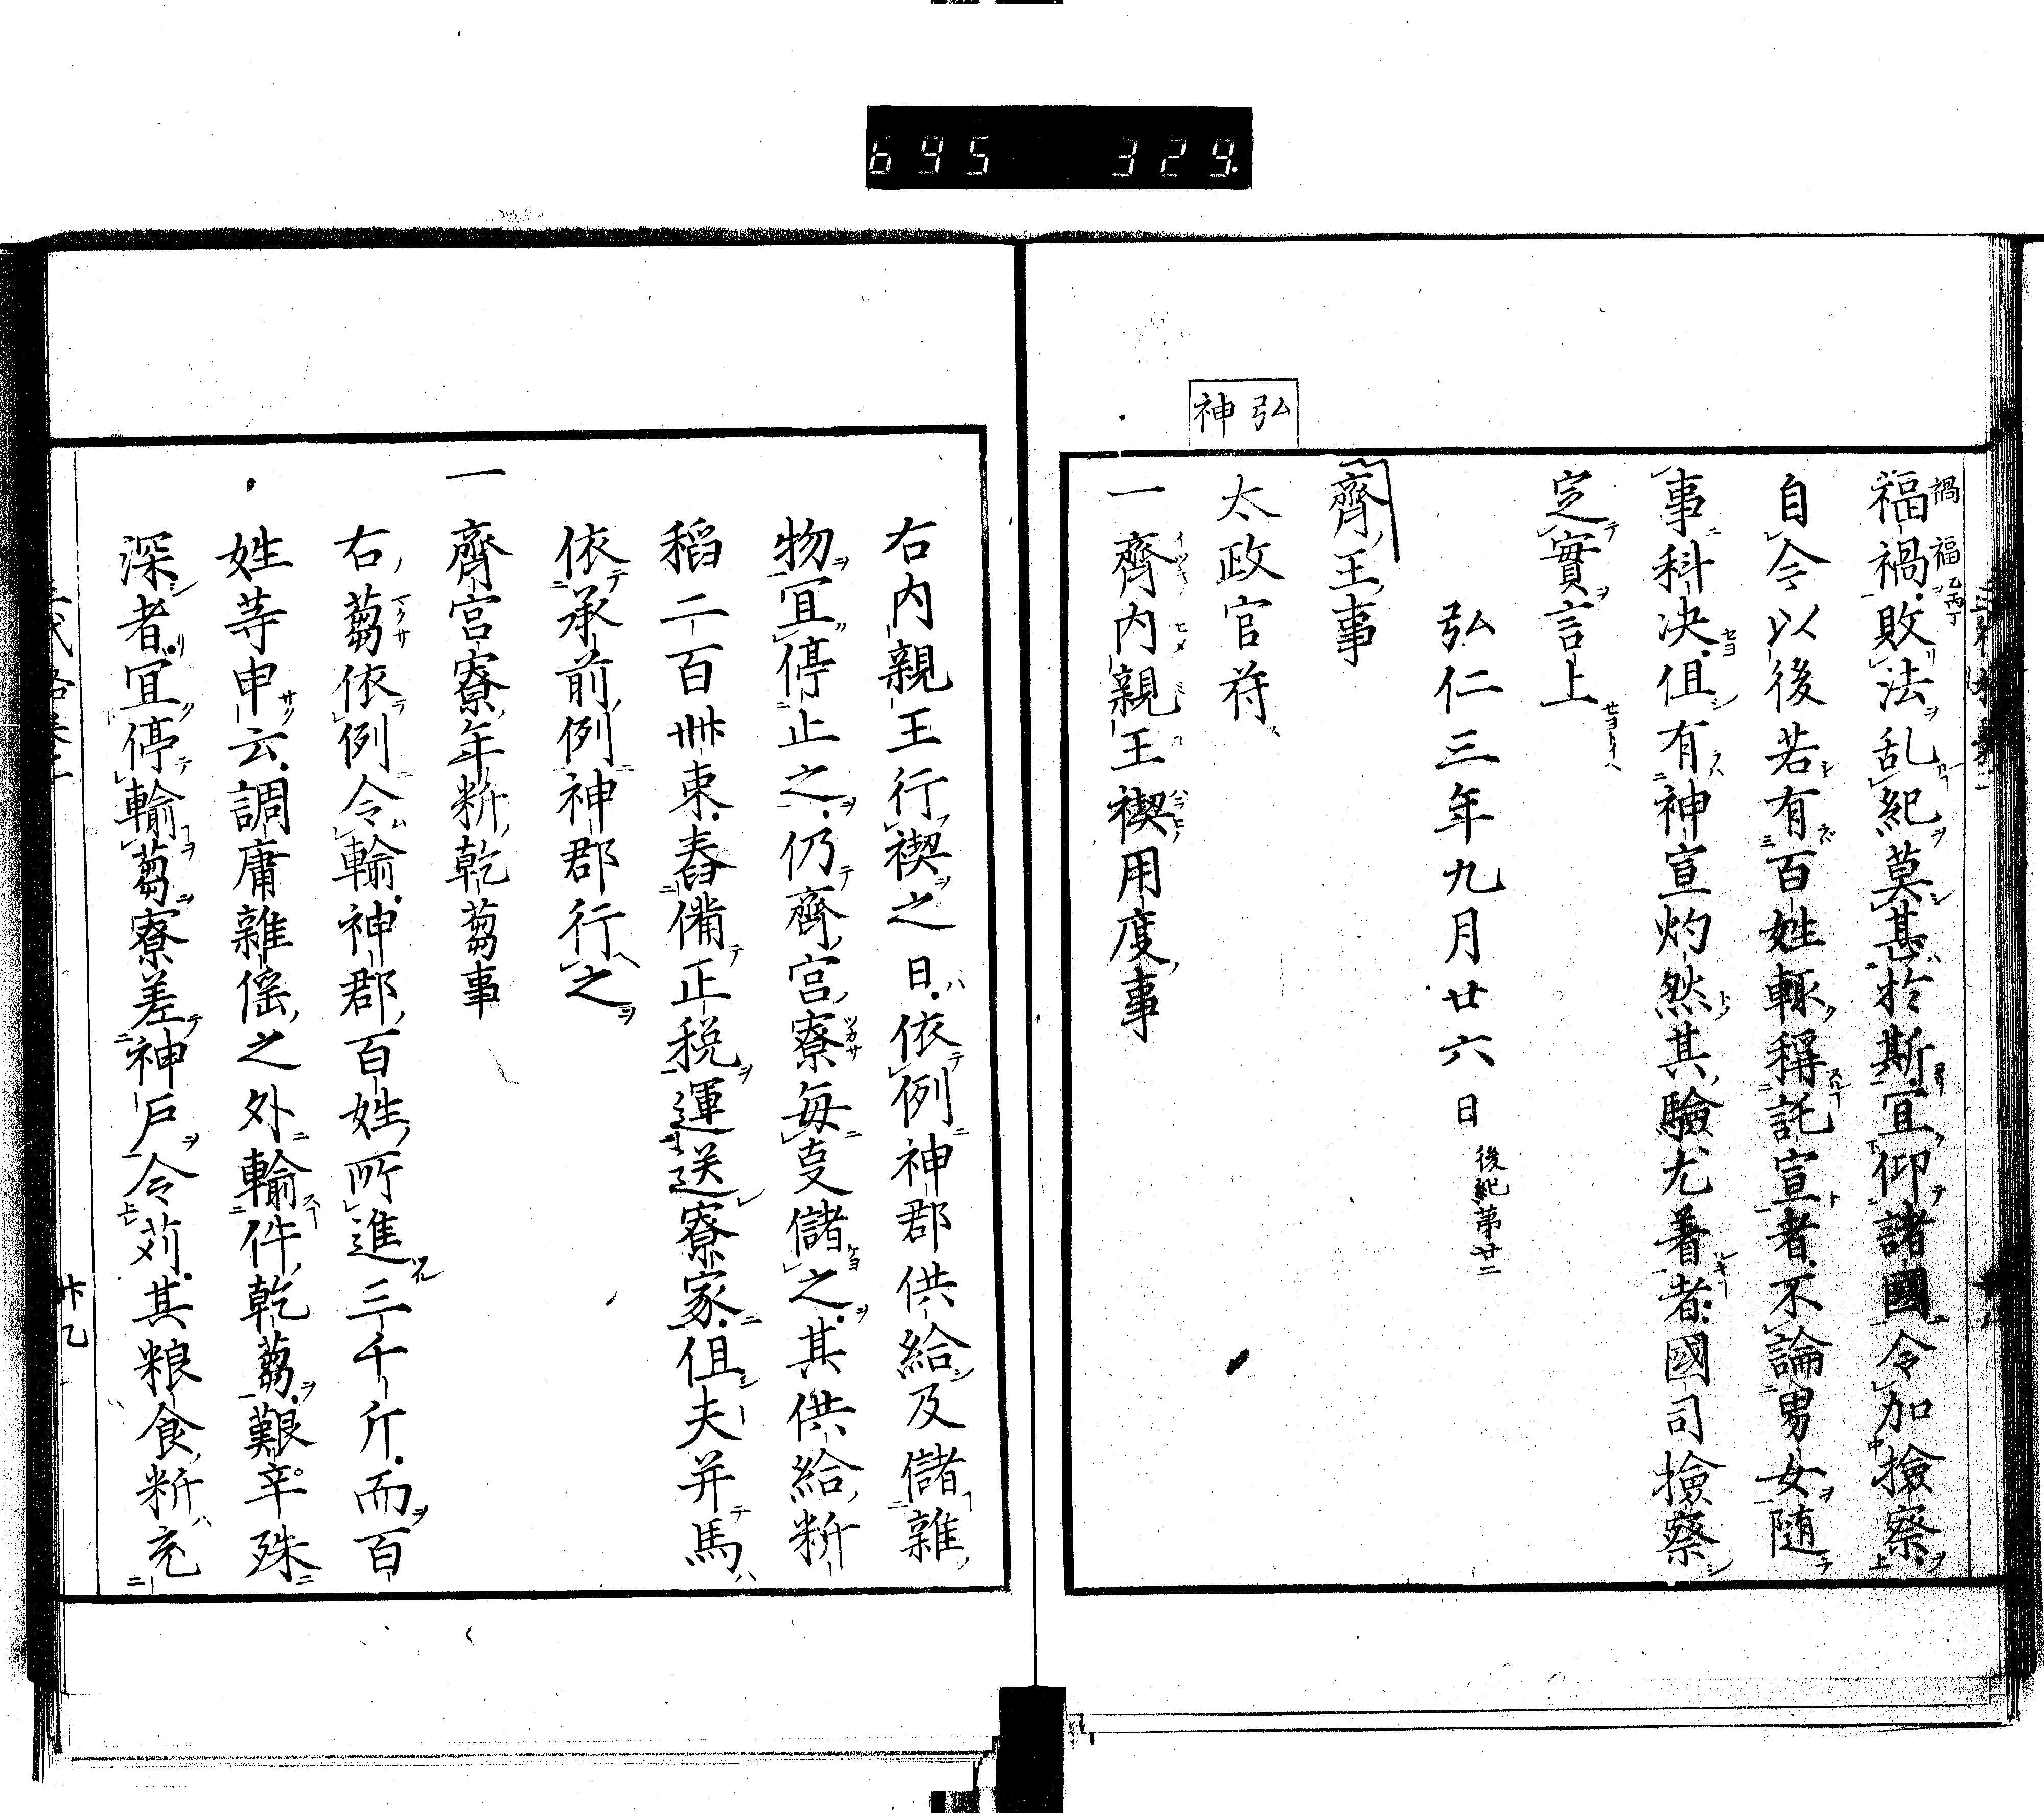 695 329.
福禍敗法乱紀莫甚於斯宜仰諸國令加撿察
禍福乙丙丁
自今以後若有百姓輙稱託宣者不論男女随
事科决但有神宣灼然其驗尤著者國司撿察
定實言上
弘仁三年九月廿六日 後紀第廿二
齊王事
弘神
太政官符
一齊内親王禊用度事
右内親王行禊之日依例神郡供給及儲雜
物宜停止之仍齊宮寮毎度儲之其供給粁
稻二百卌束舂備正税運送寮家但夫并馬
依承前例神郡行之
一齊宮寮年粁乾蒭事
右蒭依例令輸神郡百姓所進三千斤而百
姓等申云調庸雜徭之外輸件乾蒭艱辛殊
深者宜停輸蒭寮差神戸令苅其粮食粁充